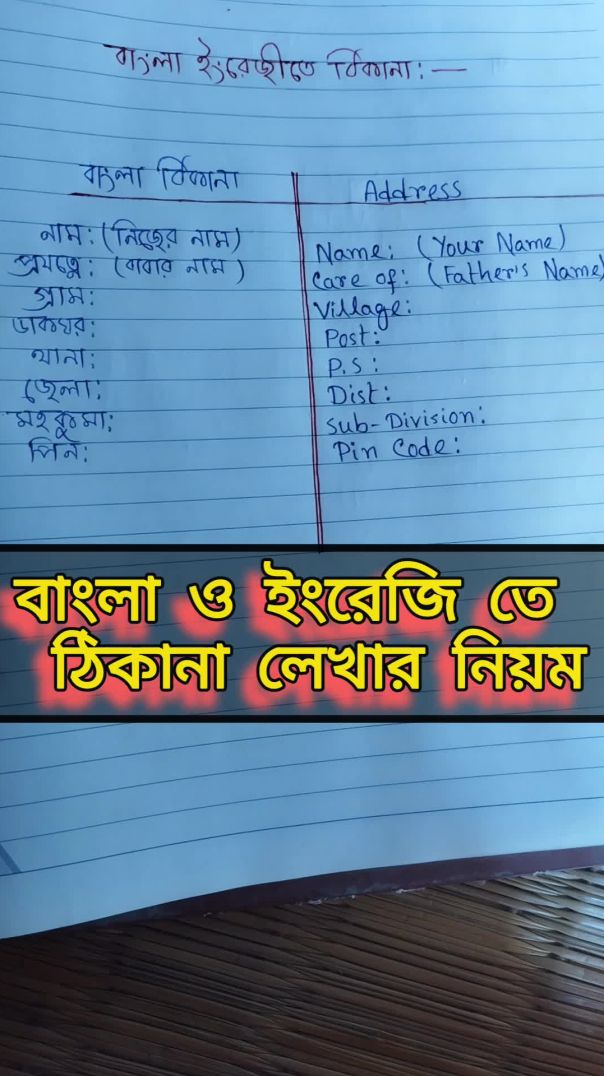 বাংলা ইংরেজীতে ঠিকানা : —
বাংলা ঠিকানা
নাম : (নিজের নাম)
প্রযত্নে : (বাবার নাম)
গ্রাম :
ডাকঘর :
থানা :
জেলা :
মহকুমা :
পিন :
Address
Name : (Your Name)
Care of : (Father's Name)
Village :
Post :
P.S :
Dist :
Sub-Division :
Pin Code :
বাংলা ও ইংরেজি তে
ঠিকানা লেখার নিয়ম